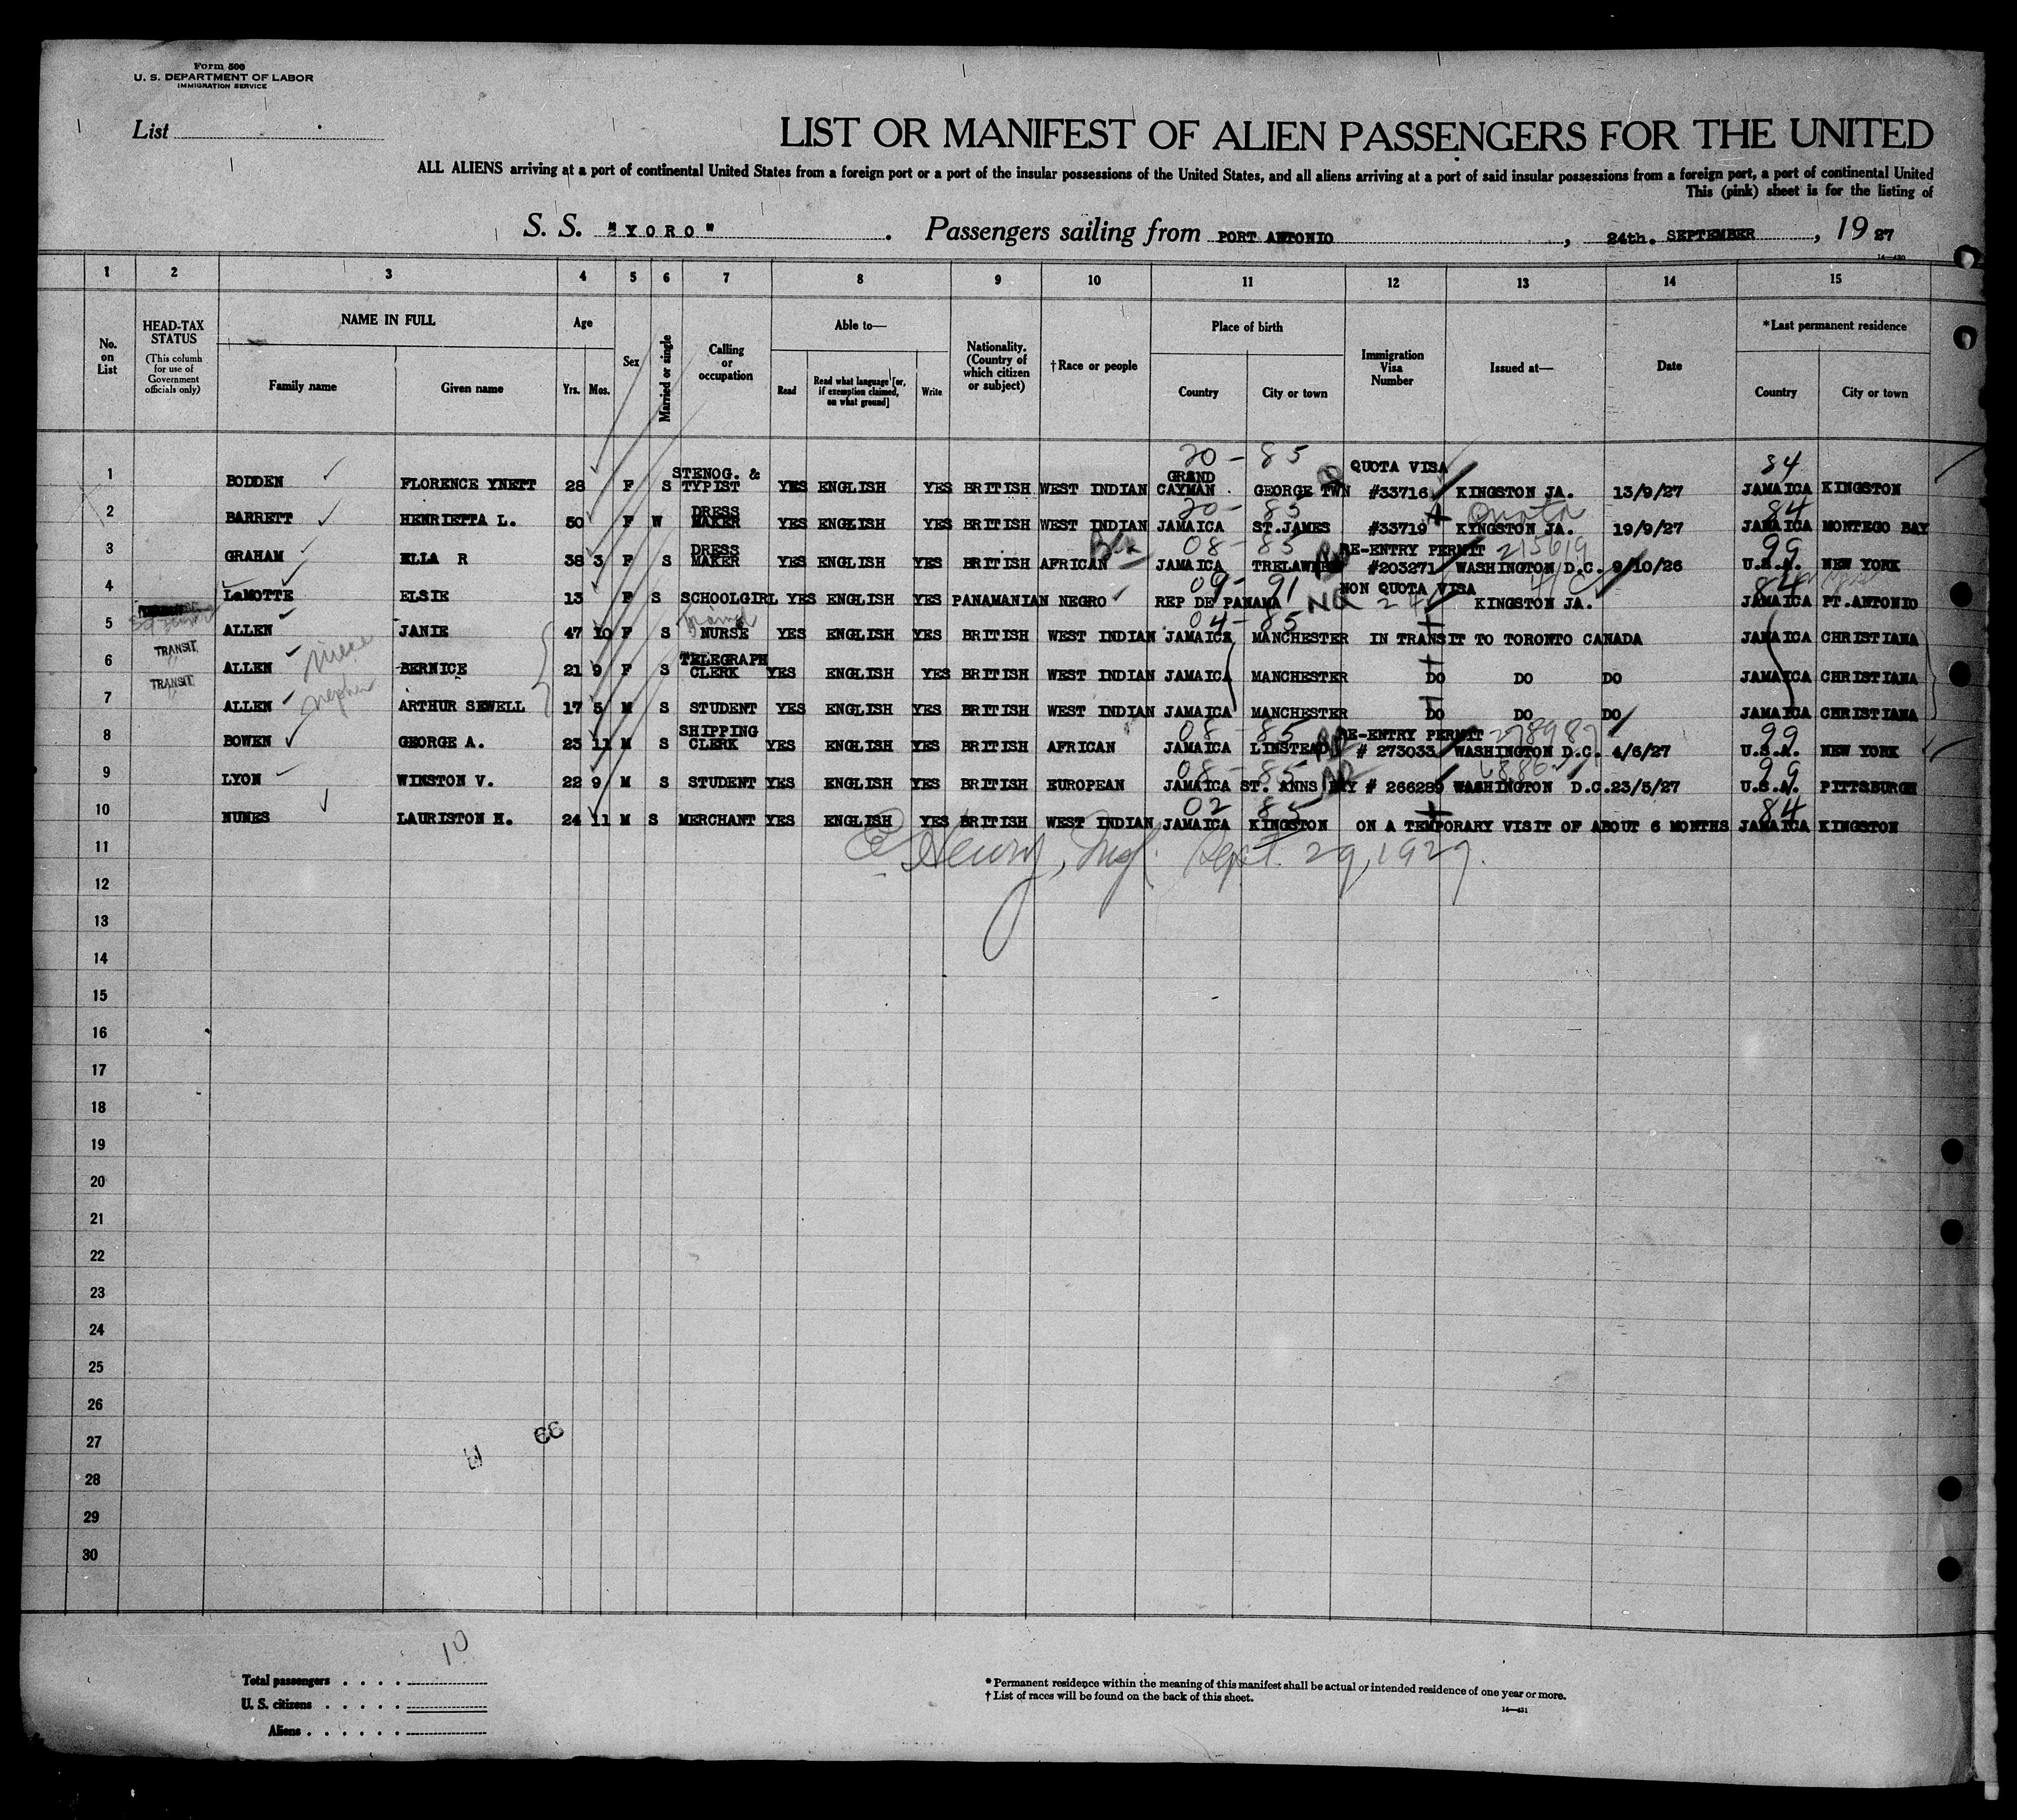 Form 500
U. S. DEPARTMENT OF LABOR
IMMIGRATION SERVICE
List
LIST OR MANIFEST OF ALIEN PASSENGERS FOR THE UNITED
ALL ALIENS arriving at a port of continental United States from a foreign port or a port of the insular possessions of the United States, and all aliens arriving at a port of said insular possessions from a foreign port, a port of continental United
This (pink) sheet is for the listing of
S. S. "YORO" . Passengers sailing from PORT ANTONIO , 24th. SEPTEMBER , 19 27
14—430
1 2 3 4 5 6 7 8 9 10 11 12 13 14 15
No. on List
HEAD-TAX STATUS
(This column for use of Government officials only)
NAME IN FULL
Family name
Given name
Age
Yrs. Mos.
Sex
Married or single
Calling or occupation
Able to—
Read
Read what language [or, if exemption claimed, on what ground]
Write
Nationality. (Country of which citizen or subject)
†Race or people
Place of birth
Country
City or town
Immigration Visa Number
Issued at—
Date
*Last permanent residence
Country
City or town
20 - 85 QUOTA VISA 84
1 BODDEN FLORENCE YNETT 28 F S STENOG. & TYPIST YES ENGLISH YES BRITISH WEST INDIAN GRAND CAYMAN . GEORGE TWN #33716 KINGSTON JA. 13/9/27 JAMAICA KINGSTON
20 - 85 Quota 84
2 BARRETT HENRIETTA L. 50 F W DRESS MAKER YES ENGLISH YES BRITISH WEST INDIAN JAMAICA ST.JAMES #33719 KINGSTON JA. 19/9/27 JAMAICA MONTEGO BAY
08 - 85 RE-ENTRY PERMIT 215619 99
3 GRAHAM ELLA R 38 3 F S DRESS MAKER YES ENGLISH YES BRITISH AFRICAN JAMAICA TRELAWNEY #203271 WASHINGTON D.C. 9/10/26 U.S.A. NEW YORK
09 - 91 NON QUOTA VISA 84
4 LaMOTTE ELSIE 13 F S SCHOOLGIRL YES ENGLISH YES PANAMANIAN NEGRO REP DE PANAMA NQ KINGSTON JA. JAMAICA PT.ANTONIO
04 - 85
5 ALLEN JANIE 47 10 F S Trained NURSE YES ENGLISH YES BRITISH WEST INDIAN JAMAICA MANCHESTER IN TRANSIT TO TORONTO CANADA JAMAICA CHRISTIANA
TRANSIT
6 ALLEN niece BERNICE 21 9 F S TELEGRAPH CLERK YES ENGLISH YES BRITISH WEST INDIAN JAMAICA MANCHESTER DO DO DO JAMAICA CHRISTIANA
TRANSIT
7 ALLEN nephew ARTHUR SEWELL 17 5 M S STUDENT YES ENGLISH YES BRITISH WEST INDIAN JAMAICA MANCHESTER DO DO DO JAMAICA CHRISTIANA
08 - 85 RE-ENTRY PERMIT 99
8 BOWEN GEORGE A. 23 11 M S SHIPPING CLERK YES ENGLISH YES BRITISH AFRICAN JAMAICA LINSTEAD # 273033 WASHINGTON D.C. 4/6/27 U.S.A. NEW YORK
08 - 85 99
9 LYON WINSTON V. 22 9 M S STUDENT YES ENGLISH YES BRITISH EUROPEAN JAMAICA ST. ANNS BAY # 266289 WASHINGTON D.C. 23/5/27 U.S.A. PITTSBURGH
02 85 84
10 NUNES LAURISTON H. 24 11 M S MERCHANT YES ENGLISH YES BRITISH WEST INDIAN JAMAICA KINGSTON ON A TEMPORARY VISIT OF ABOUT 6 MONTHS JAMAICA KINGSTON
11 Henry, Sept. 29, 1927.
12
13
14
15
16
17
18
19
20
21
22
23
24
25
26
27
28
29
30
10
Total passengers
U. S. citizens
Aliens
* Permanent residence within the meaning of this manifest shall be actual or intended residence of one year or more.
† List of races will be found on the back of this sheet.
14—431